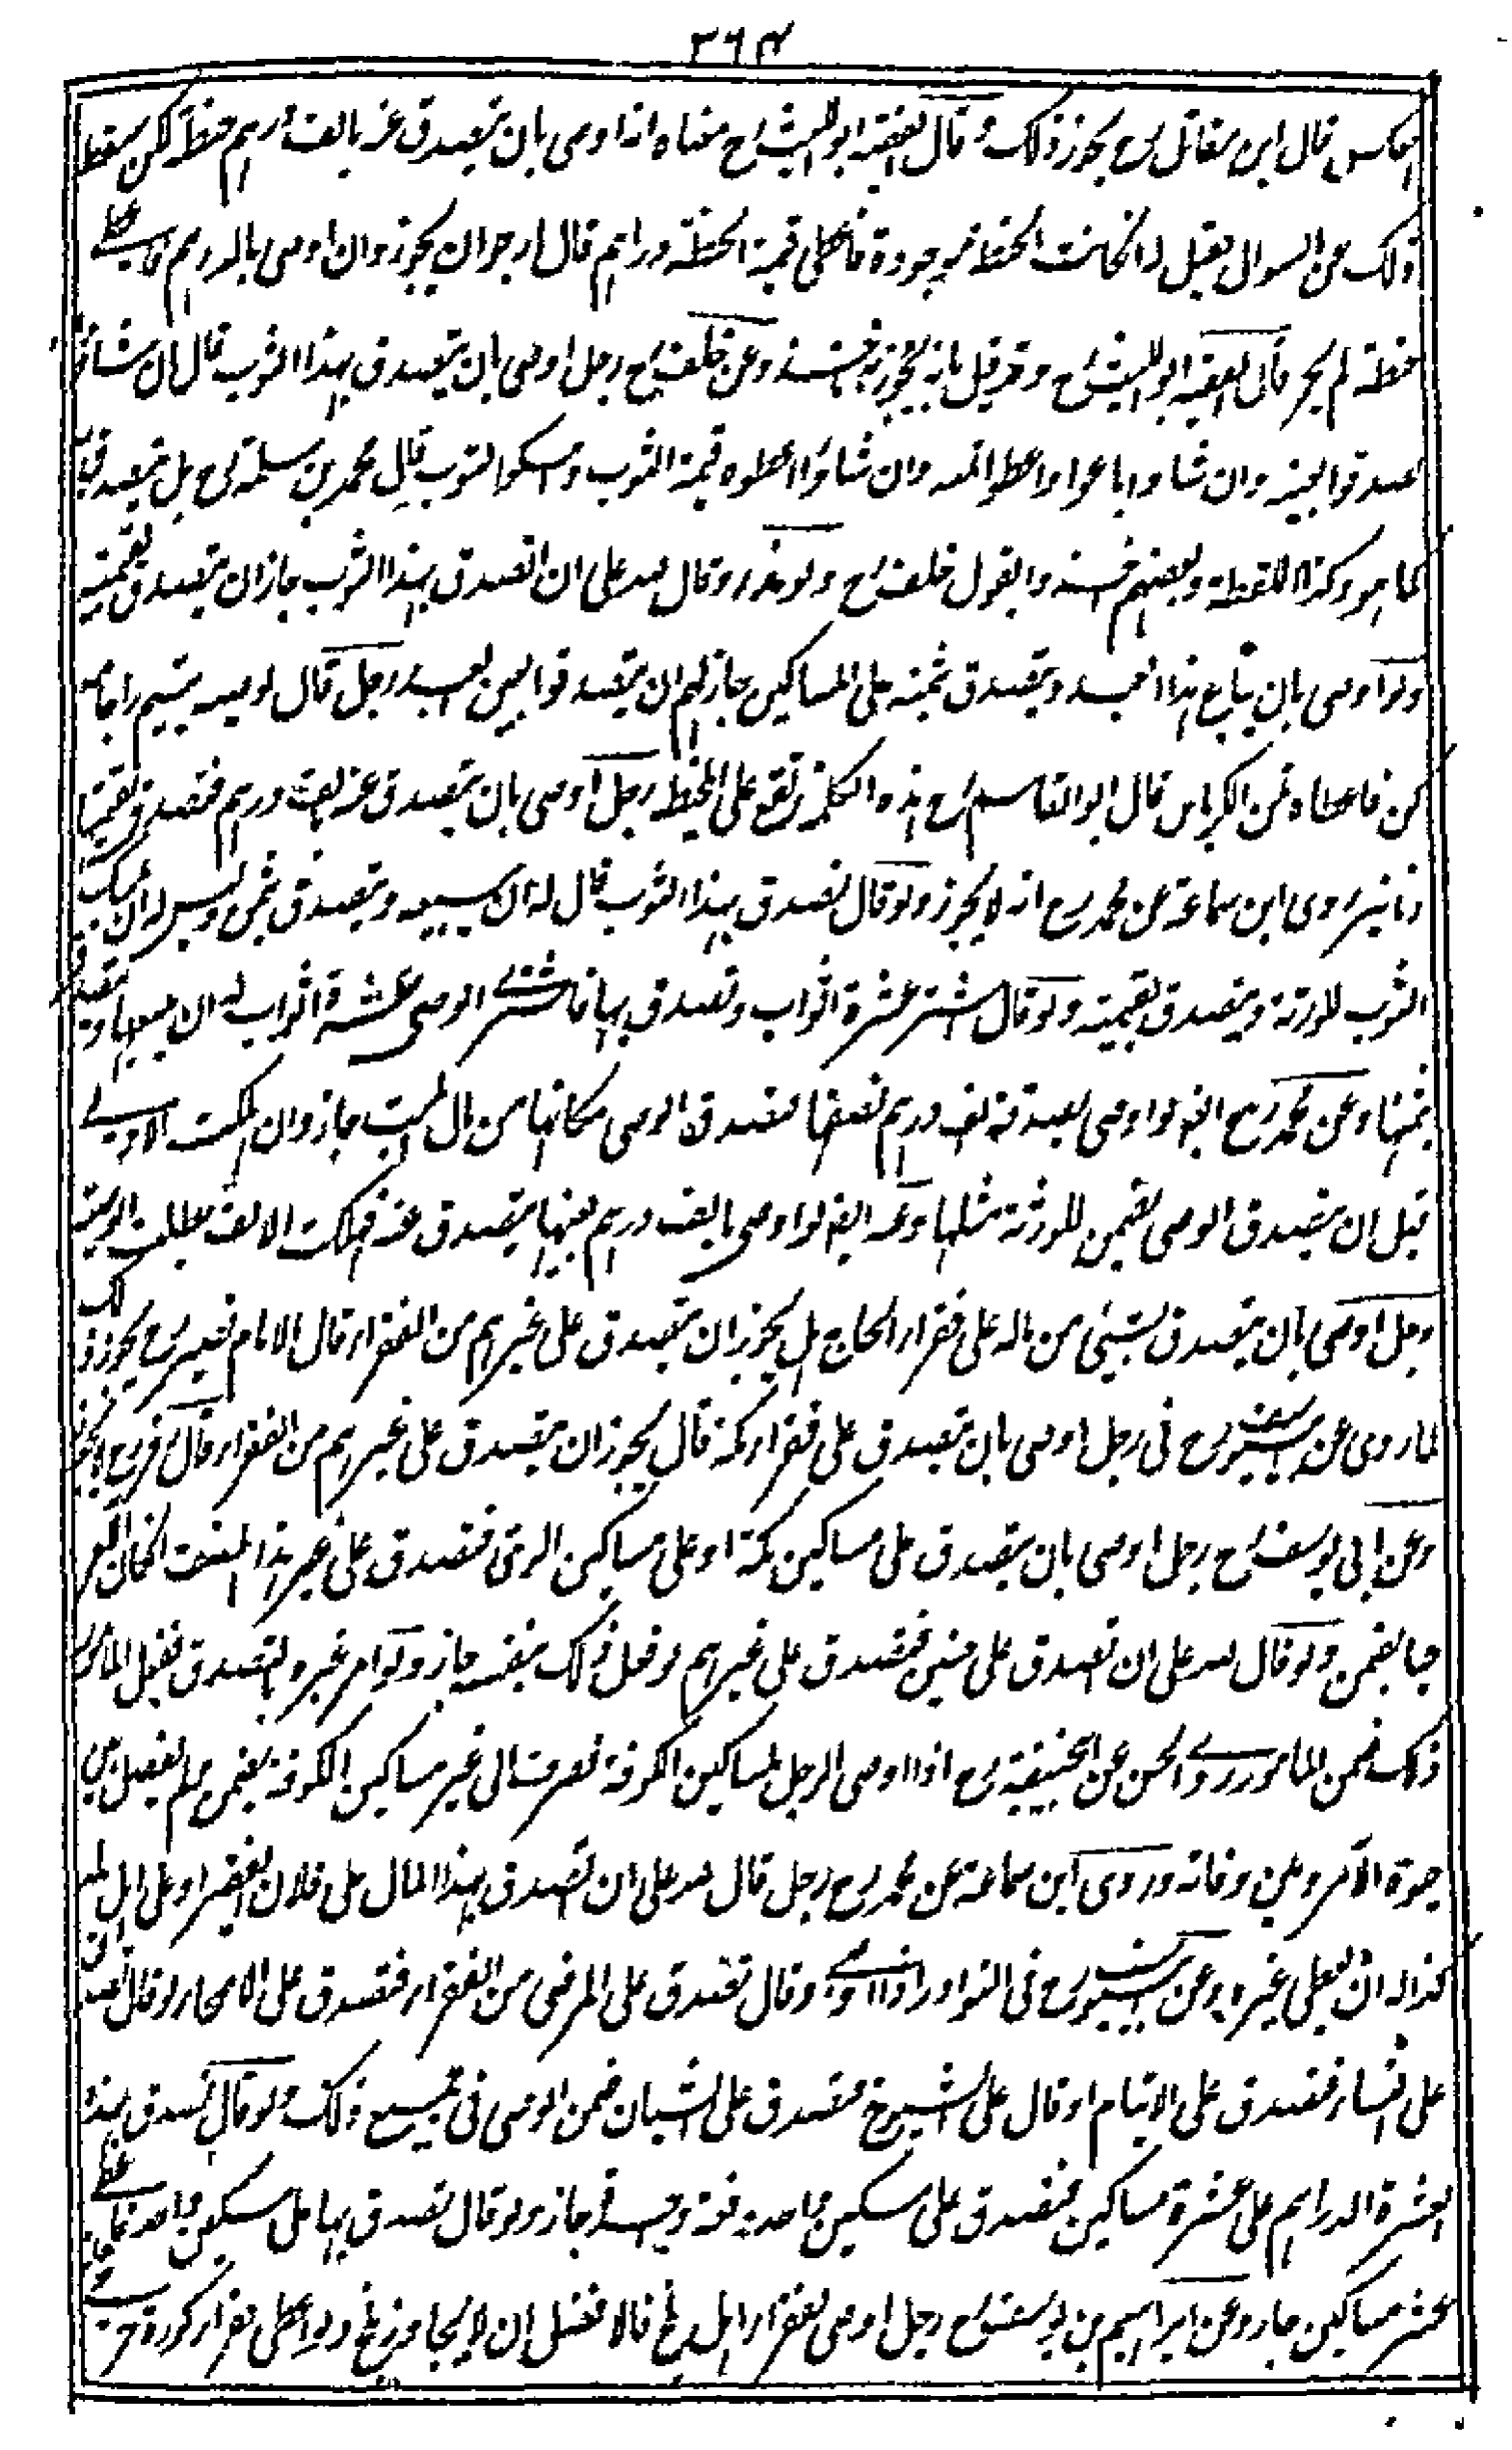 ٣٦٤
العكس قال ابن مقاتل رح يجوز ذلك وقال الفقيه ابو الليث رح معناه اذا اوصى بان يتصدق عنه بالف درهم حنطة لكن سقط
ذلك عن السوال فقيل له ان كانت الحنطة موجودة فاعطى قيمة الحنطة دراهم قال ارجو ان يجوز وان اوصى بالدراهم فاعطى
حنطة لم يجز قال الفقيه ابو الليث رح وقد قيل بانه يجوز وبه ناخذ وعن خلف رح رجل اوصى بان يتصدق بهذا الثوب قال ان شاؤا
تصدقوا بعينه وان شاوا باعوا واعطوا ثمنه وان شاؤا اعطوه قيمة الثوب وامسكوا الثوب قال محمد بن سلمة رح بل يتصدق
كما هو وكذا اللقطة وبعضهم اخذوا بقول خلف رح ولو نذر وقال لله على ان اتصدق بهذا الثوب جاز ان يتصدق بقيمته
ولو اوصى بان يباع هذا العبد ويتصدق بثمنه على المساكين جاز لهم ان يتصدقوا بعين العبد رجل قال لوصيه يتيم را جامه
كن فاعطاه ثمن الكرباس قال ابو القاسم رح هذه الكلمة تقع على المخيط رجل اوصى بان يتصدق عنه بالف درهم فتصدق بقيمتها
دنانير روى ابن سماعة عن محمد رح انه لا يجوز ولو قال تصدق بهذا الثوب قال له ان يبيعه ويتصدق بثمنه وليس له ان يمسك
الثوب للورثة ويتصدق بقيمته ولو قال اشتر عشرة اثواب وتصدق بها فاشترى الوصى عشرة اثواب له ان يبيعها ويتصدق
بثمنها وعن محمد رح ايضا لو اوصى بصدقة الف درهم بعينها فتصدق الوصى مكانها من مال الميت جاز وان هلكت الاولى
قبل ان يتصدق الوصى يضمن للورثة مثلها وعنه ايضا لو اوصى بالف درهم بعينها يتصدق عنه فهلكت الالف بطلت الوصية
رجل اوصى بان يتصدق بشئ من ماله على فقراء الحاج هل يجوز ان يتصدق على غيرهم من الفقراء قال الامام نصير رح يجوز ذلك
لما روى عن ابى يوسف رح فى رجل اوصى بان يتصدق على فقراء مكة قال يجوز ان يتصدق على غيرهم من الفقراء وقال زفر رح لا يجوز
وعن ابى يوسف رح رجل اوصى بان يتصدق على مساكين مكة او على مساكين الرى فتصدق على غير هذا الصنف ان كان الآمر
حيا يضمن ولو قال لله على ان تصدق على جنس فتصدق على غيرهم لو فعل ذلك بنفسه جاز ولو امر غيره بالتصدق ففعل المامور
ذلك ضمن المامور وروى الحسن عن ابى حنيفة رح اذا اوصى الرجل لمساكين الكوفة فصرف الى غير مساكين الكوفة يضمن ولم يفصل بين
حيوة الآمر وبين وفاته وروى ابن سماعة عن محمد رح رجل قال لله على ان تصدق بهذا المال على فلان الفقير او على اهل
كذا له ان يعطى غيره وعن ابى يوسف رح فى النوادر اذا اوصى وقال تصدق على المرضى من الفقراء فتصدق على الاصحاء او قال تصدق
على النساء فتصدق على الايتام او قال على الشيوخ فتصدق على الشبان ضمن الوصى فى جميع ذلك ولو قال تصدق بهذه
العشرة الدراهم على عشرة مساكين فتصدق على مسكين واحد دفعة واحدة جاز ولو قال تصدق بها على مسكين واحد فاعطى
عشر مساكين جاز وعن ابراهيم بن يوسف رح رجل اوصى لفقراء اهل بلخ فالافضل ان لا يجاوز بلخ ولو اعطى فقراء كورة اخرى